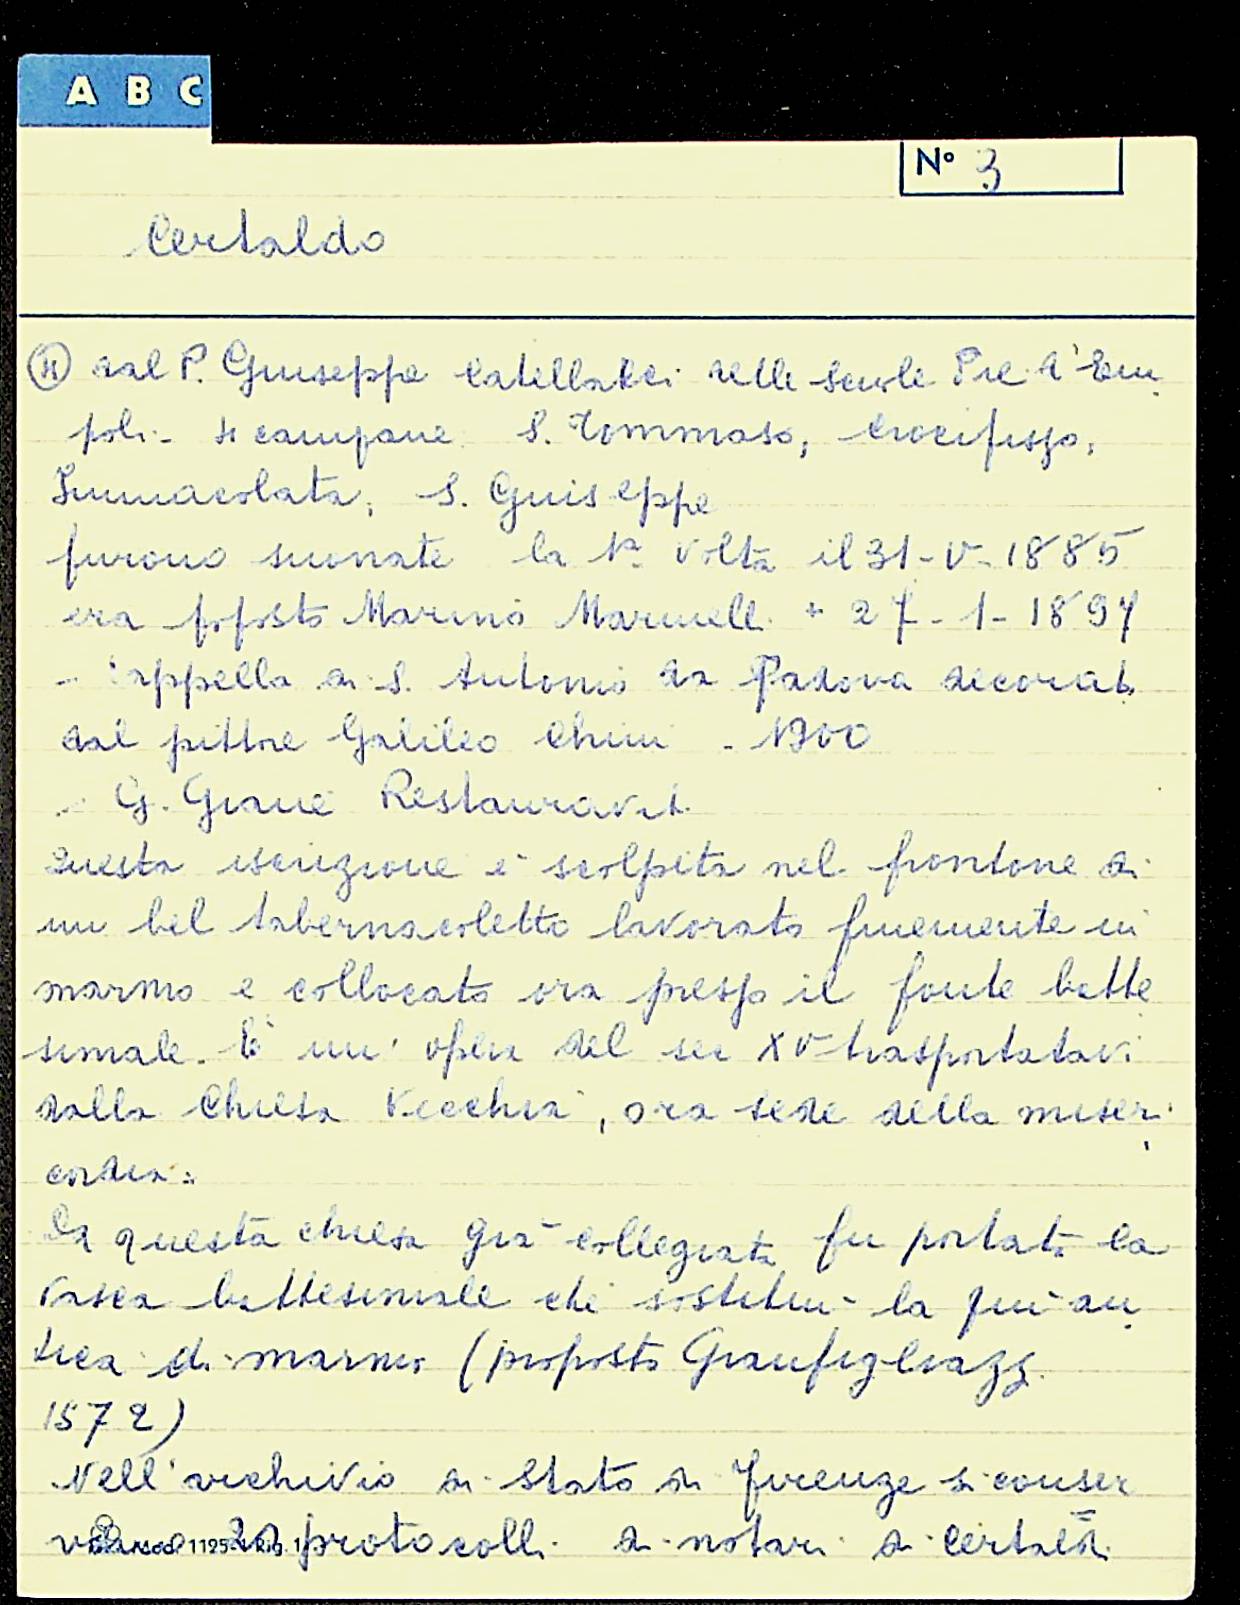 A B C
N° 3
Certaldo
dal P. Giuseppe Catellacci delle Scuole Pie d'Em
poli - 4 campane S. Tommaso, Crocifisso,
Immacolata, S. Giuseppe
furono suonate la 1a volta il 31-V-1885
era proposto Marino Marinelli + 27-1-1897
- Cappella di S. Antonio da Padova decorata
dal pittore Galileo Chini - 1900
- G. Restauravit
Questa iscrizione è scolpita nel frontone di
un bel tabernacoletto lavorato finemente in
marmo e collocato ora presso il fonte batte
simale. È un'opera del sec XV trasportatavi
dalla Chiesa Vecchia, ora sede della miseri
cordia.
Da questa chiesa già collegiata fu portata la
vasca battesimale che sostituì la più an
tica di marmo (proposto Gianfigliazzi
1572)
Nell'archivio di Stato di Firenze si conser
vano 20 protocolli di notari di Certaldo